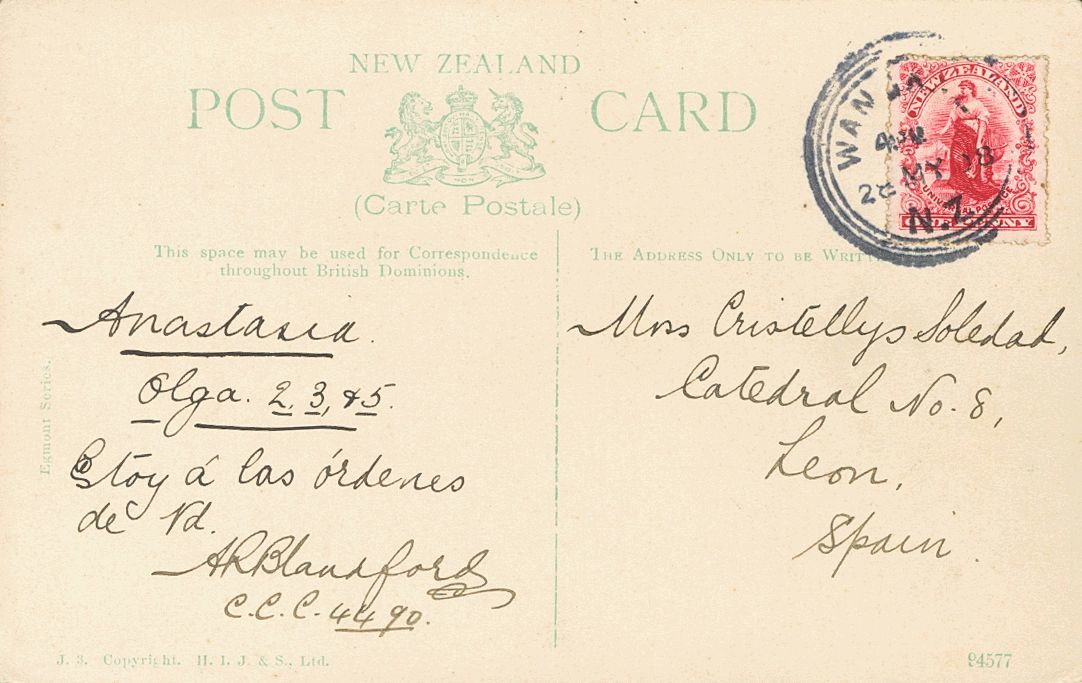 NEW ZEALAND
POST CARD
(Carte Postale)
This space may be used for Correspondence
throughout British Dominions.
THE ADDRESS ONLY TO BE
NEW ZEALAND
UNIVERSAL POSTAGE
ONE PENNY
4 PM
28 MY 08
N.Z
Anastasia.
Olga. 2, 3, & 5.
Estoy á las órdenes
de Vd.
ARBlandford
C.C.C. 4490.
Miss Cristellys Soledad,
Catedral No. 8,
Leon,
Spain
Egmont Series.
J. 3. Copyright. H. I. J. & S., Ltd.
94577